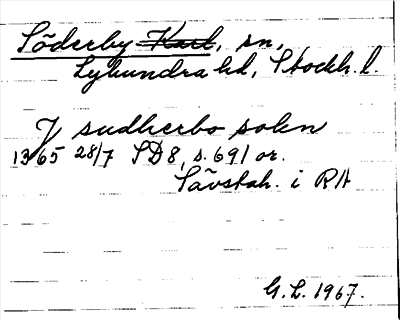 Söderby Karl, sn,
Lyhundra hd, Stockh. l.
J sudherbo sokn
1365 28/7 SD 8, s. 691 or.
Sävstah. i RA
G. L. 1967.